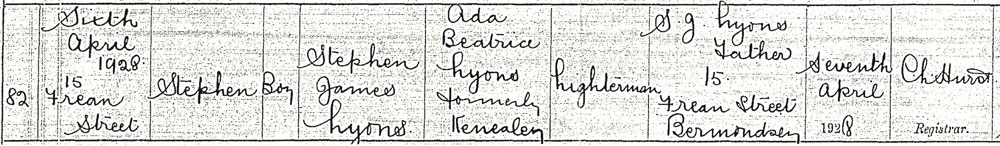 82
Sixth
April
1928
15
Frean
Street
Stephen
Boy
Stephen
James
Lyons.
Ada
Beatrice
Lyons
formerly
Kenealey
Lighterman
S J. Lyons
Father
15.
Frean Street
Bermondsey
Seventh
April
1928
Ch Hurst
Registrar.